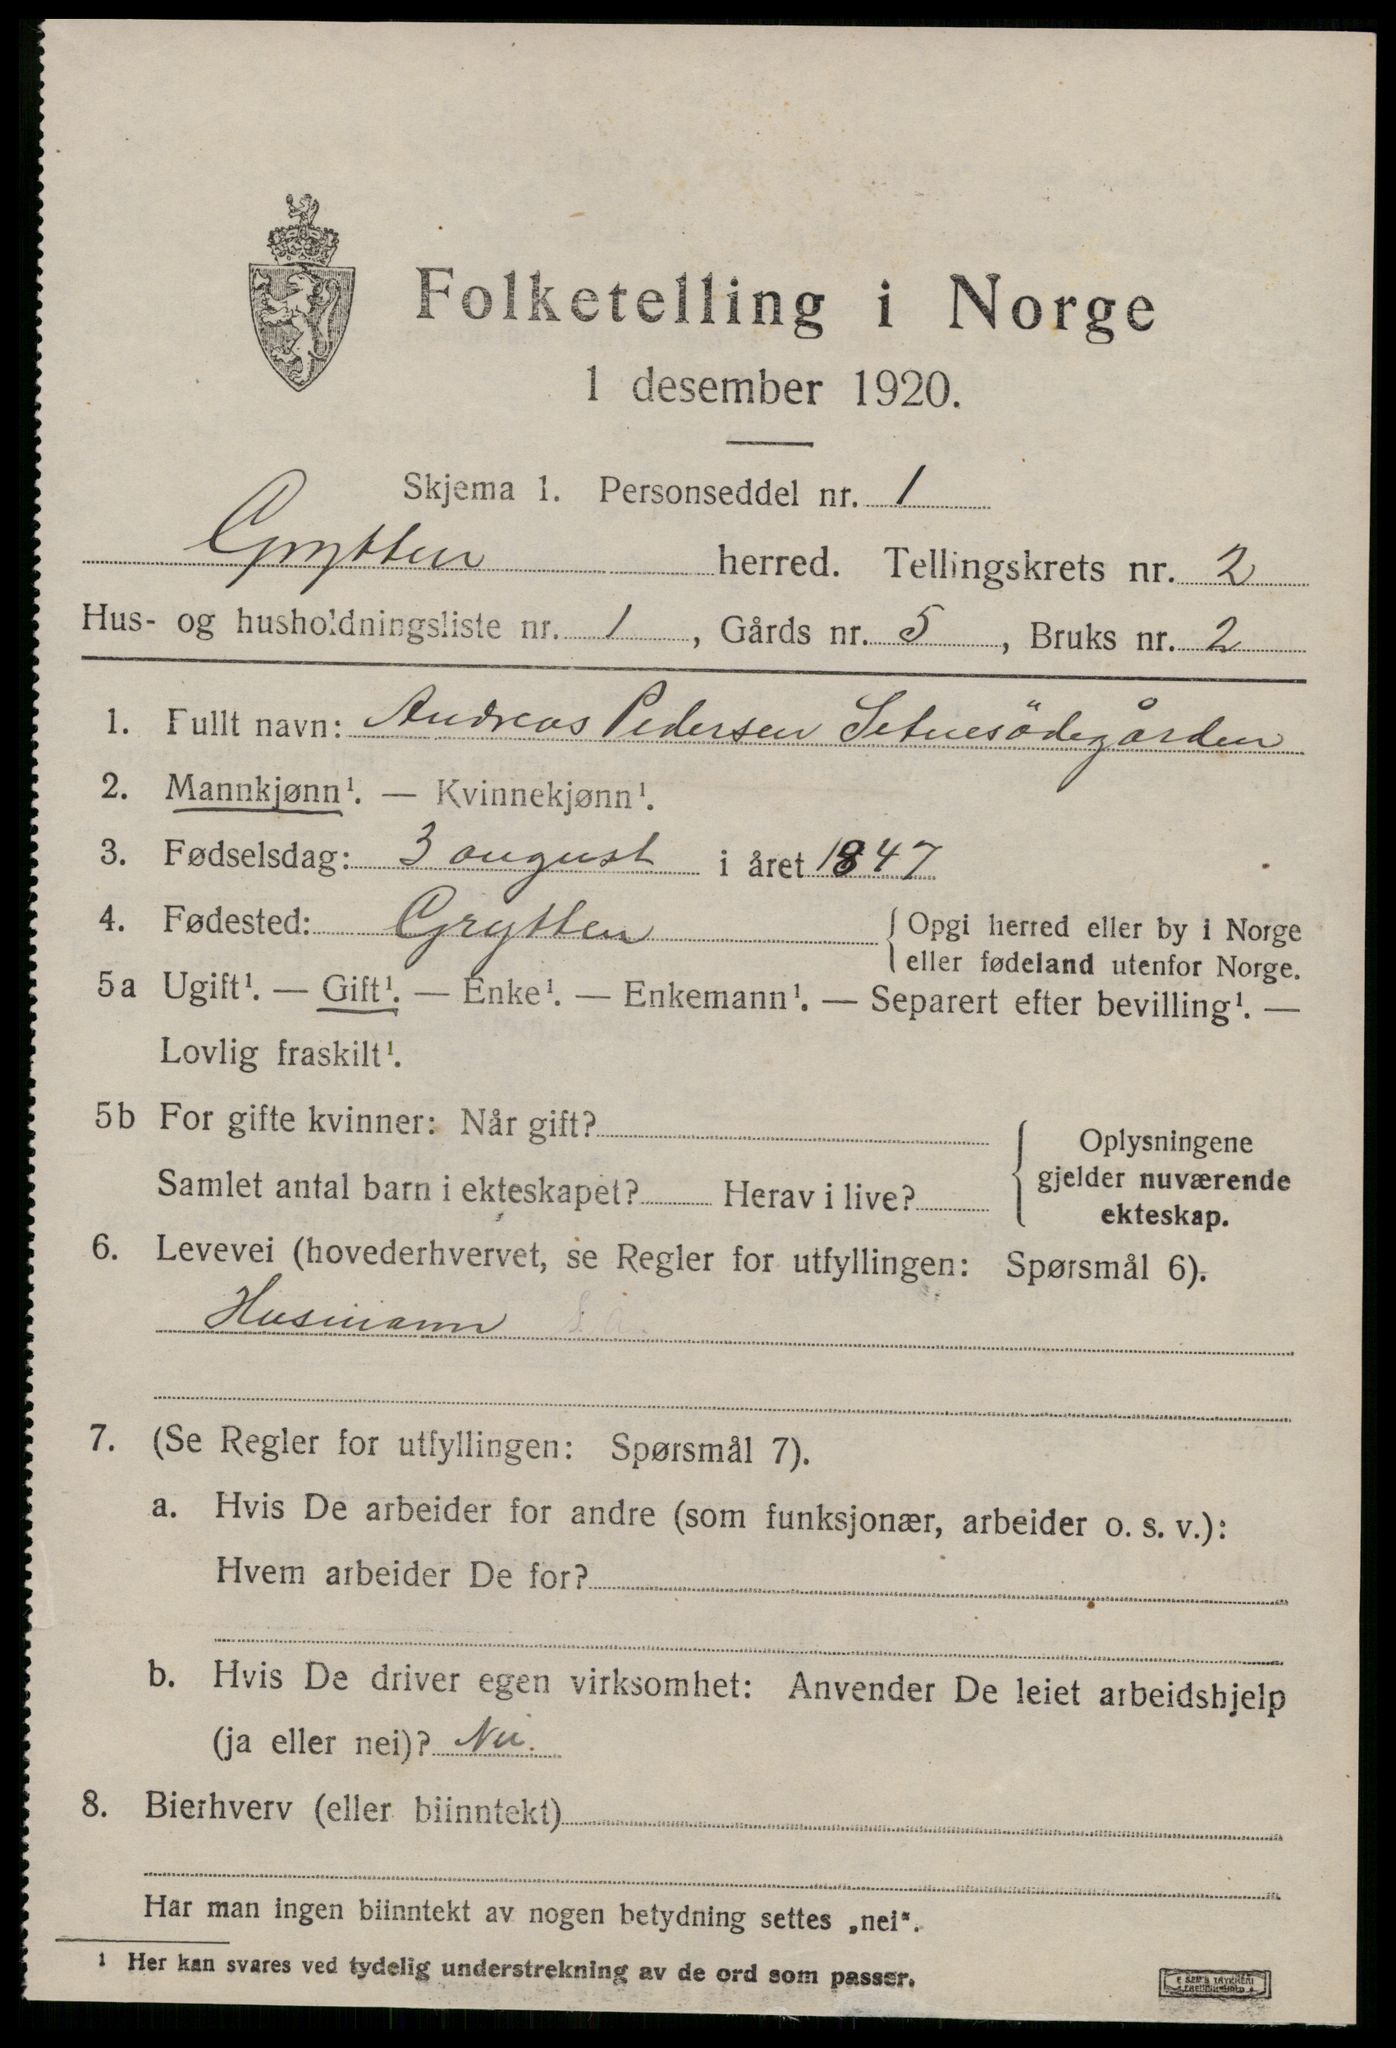 Folketelling i Norge
1 desember 1920.
Skjema 1. Personseddel nr. 1
Grytten herred. Tellingskrets nr. 2
Hus- og husholdningsliste nr. 1, Gårds nr. 5, Bruks nr. 2
1. Fullt navn: Andreas Pedersen Setnesödegården
2. Mannkjønn¹. — Kvinnekjønn¹.
3. Fødselsdag: 3 august i året 1847
4. Fødested: Grytten { Opgi herred eller by i Norge
eller fødeland utenfor Norge.
5a Ugift¹. — Gift¹. — Enke¹. — Enkemann¹. — Separert efter bevilling¹. —
Lovlig fraskilt¹.
5b For gifte kvinner: Når gift?
Samlet antal barn i ekteskapet? Herav i live?
Oplysningene
gjelder nuværende
ekteskap.
6. Levevei (hovederhvervet, se Regler for utfyllingen: Spørsmål 6).
Husmann
7. (Se Regler for utfyllingen: Spørsmål 7).
a. Hvis De arbeider for andre (som funksjonær, arbeider o. s. v.):
Hvem arbeider De for?
b. Hvis De driver egen virksomhet: Anvender De leiet arbeidshjelp
(ja eller nei)? Nei.
8. Bierhverv (eller biinntekt)
Har man ingen biinntekt av nogen betydning settes „nei".
1 Her kan svares ved tydelig understrekning av de ord som passer.